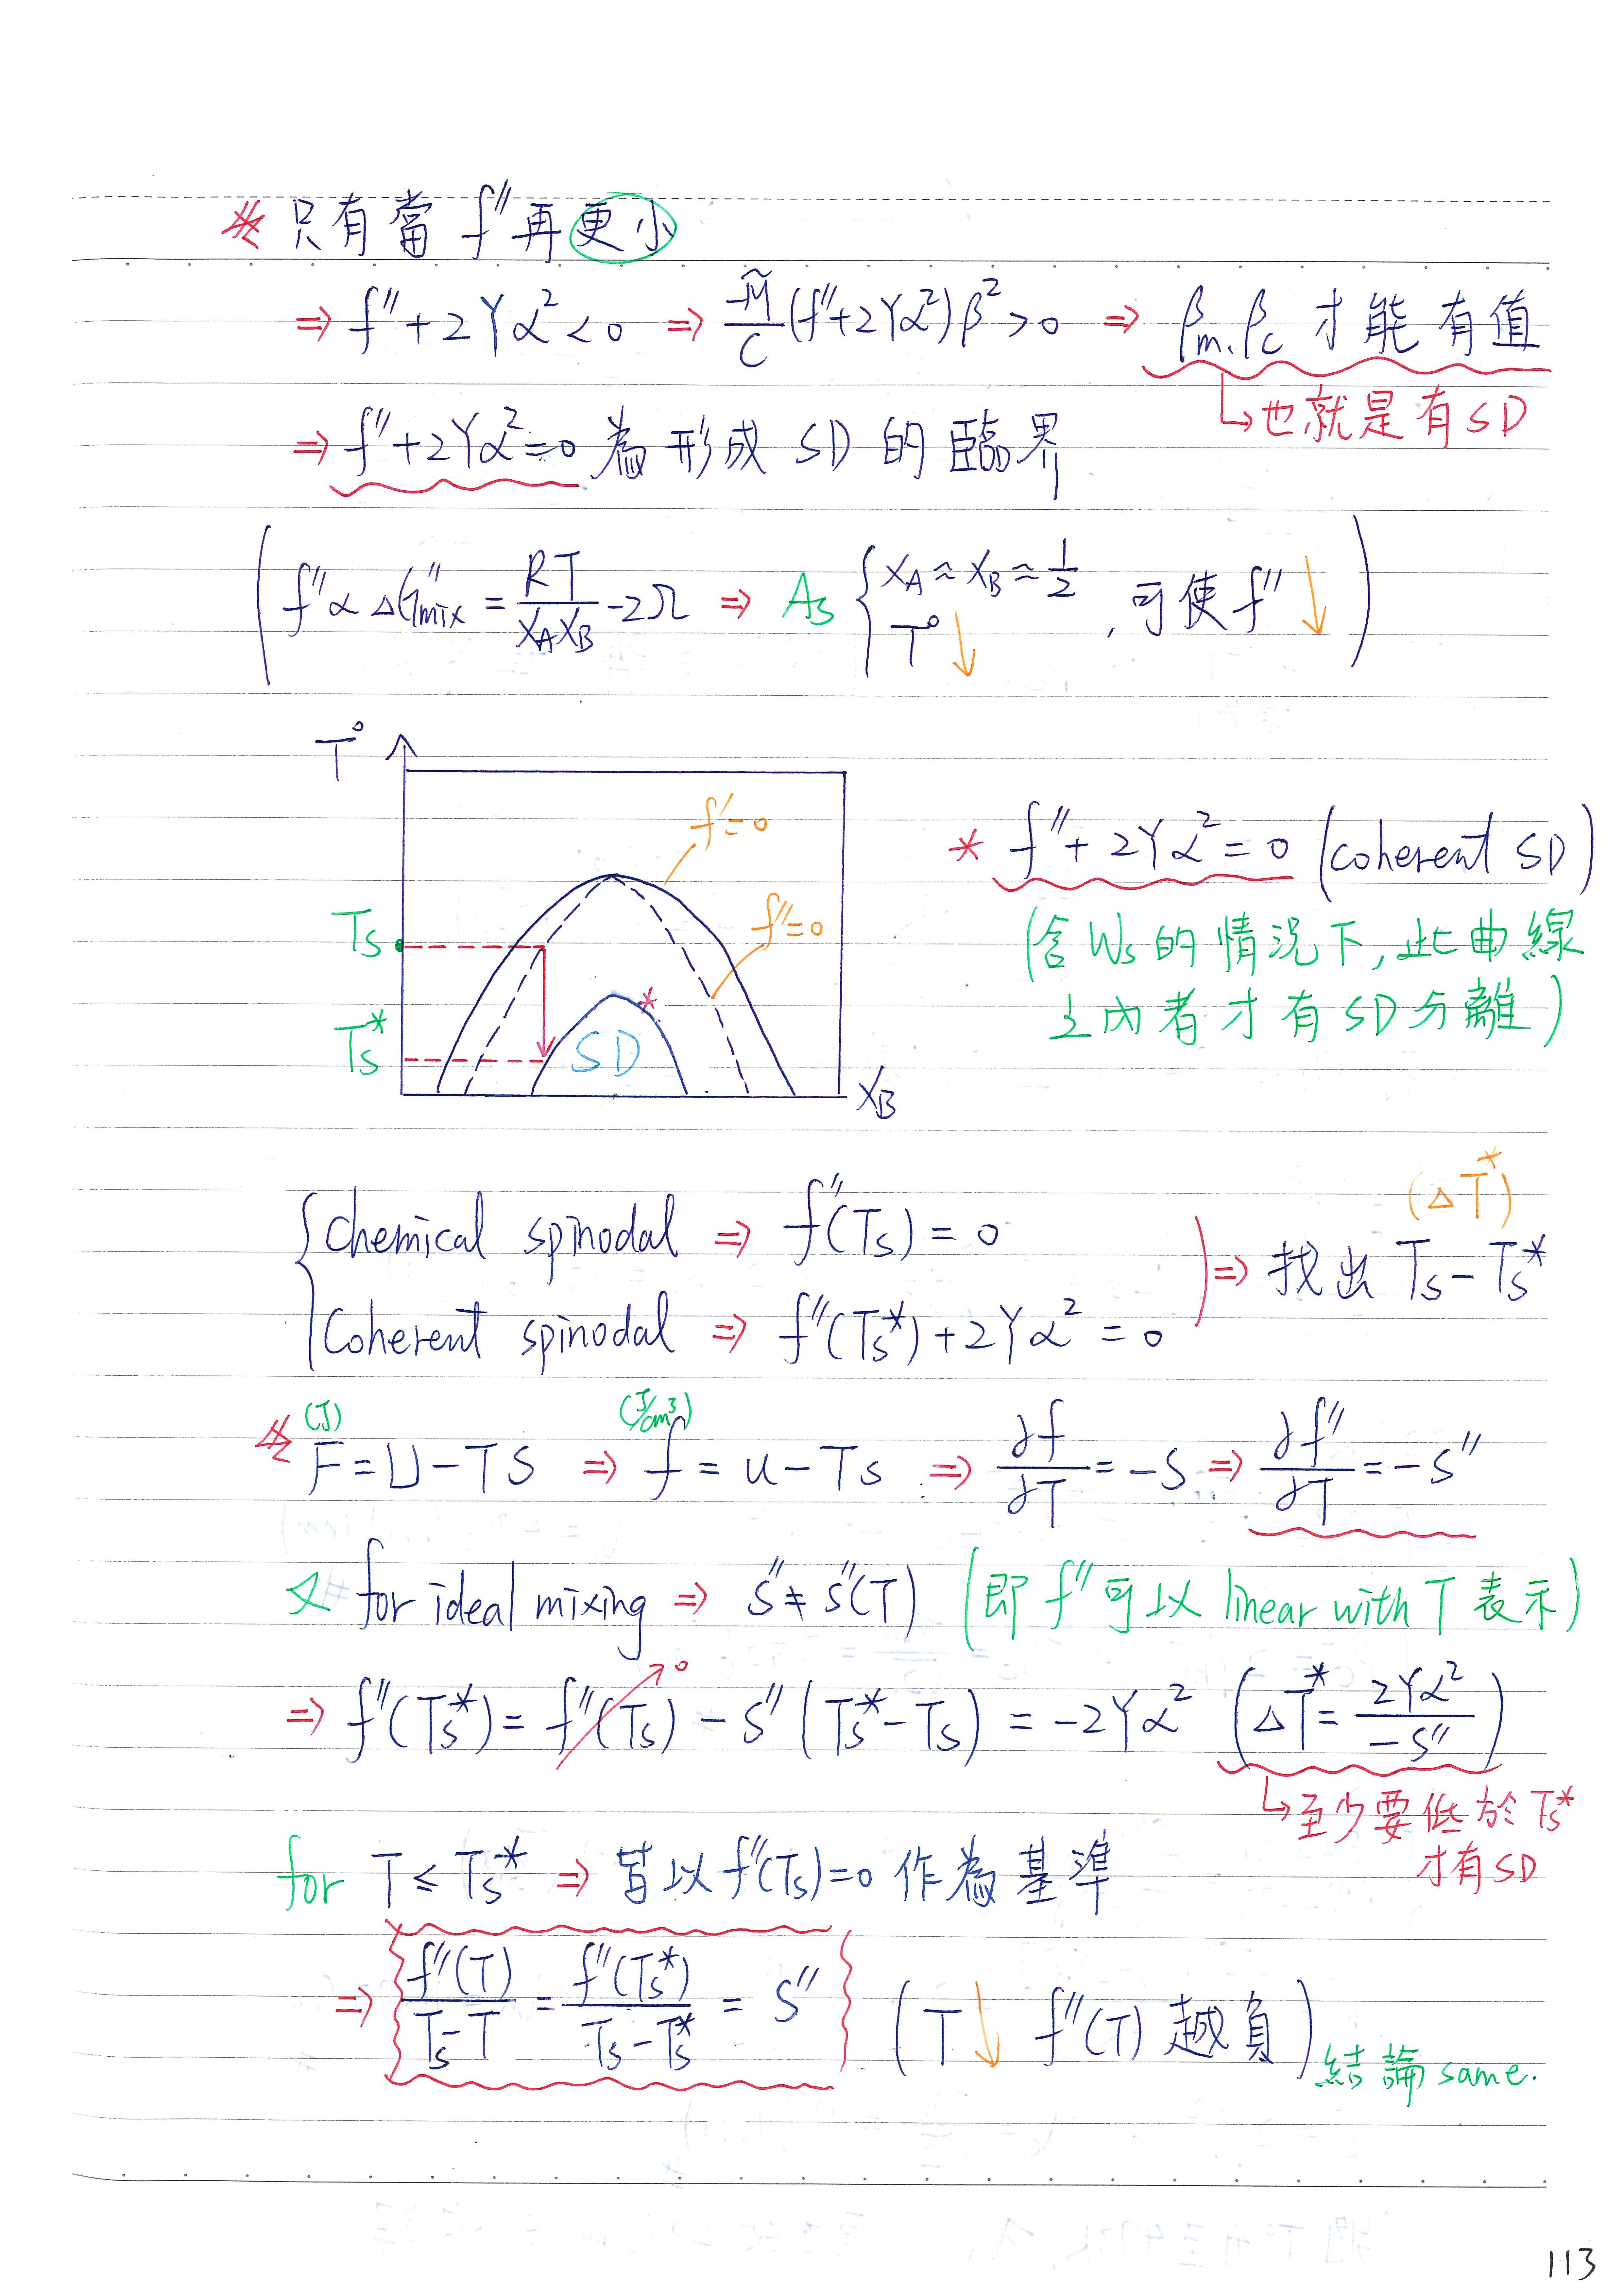 ※ 只有當 f" 再更小
⇒ f"+2Yα²<0 ⇒ -M̃/C (f"+2Yα²)β²>0 ⇒ βm、βc 才能有值
↳也就是有SD
⇒ f"+2Yα²=0 為形成 SD 的臨界
( f" α ΔG"mix = RT/(XAXB) -2Ω ⇒ As { XA≈XB≈1/2 , 可使 f" ↓ )
T°↓
T°
f'=0
* f"+2Yα²=0 (coherent SD)
f"=0
Ts
(含 Ws 的情況下,此曲線
*
之內者才有SD分離)
Ts*
SD
XB
(ΔT*)
{ Chemical spinodal ⇒ f"(Ts)=0
⇒ 找出 Ts-Ts*
Coherent spinodal ⇒ f"(Ts*)+2Yα²=0
(J) (J/cm³)
※ F=U-TS ⇒ f=u-Ts ⇒ ∂f/∂T=-s ⇒ ∂f"/∂T=-s"
又 for ideal mixing ⇒ s"≠s"(T) (即 f" 可以 linear with T 表示)
⇒ f"(Ts*)=f"(Ts)↗0 -s"(Ts*-Ts)=-2Yα² (ΔT*=2Yα²/-s")
↳至少要低於Ts*
才有SD
for T≤Ts* ⇒ 皆以 f"(Ts)=0 作為基準
⇒ f"(T)/(Ts-T) = f"(Ts*)/(Ts-Ts*) = s" (T↓ f"(T) 越負)
結論same.
113